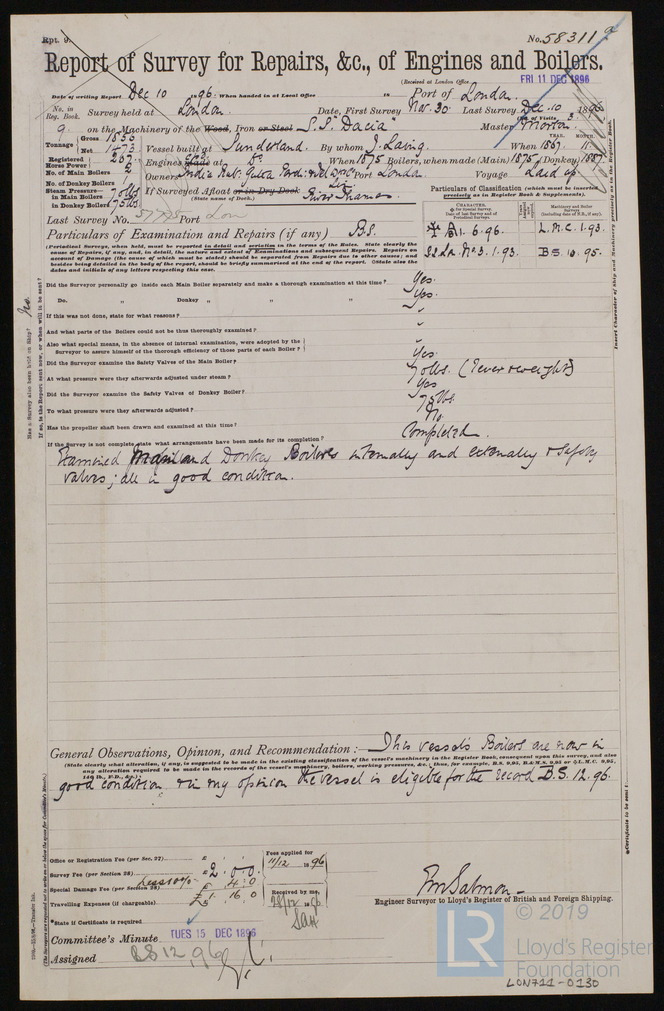 Rpt. 9.
No. 58311
Report of Survey for Repairs, &c., of Engines and Boilers.
(Received at London Office FRI 11 DEC 1896
Date of writing Report Dec 10 1896. When handed in at Local Office 18 Port of London.
No. in Reg. Book. Survey held at London. Date, First Survey Nov. 30 Last Survey Dec. 10 1896
9. on the Machinery of the Wood, Iron or Steel S.S. "Dacia" Master Morton
Tonnage Gross 1856 Net 1473 Vessel built at Sunderland. By whom J. Laing. When 1867.
Registered Horse Power 267 Engines made at Do When 1875 Boilers, when made (Main) 1875 (Donkey) 1887
No. of Main Boilers 2 Owners Port London Voyage Laid up.
No. of Donkey Boilers 1 If Surveyed Afloat or in Dry Dock River Thames
(State name of Dock.)
Steam Pressure in Main Boilers 75 lbs
in Donkey Boilers 75 lbs
Particulars of Classification (which must be inserted precisely as in Register Book & Supplements).
Last Survey No. Port Lon
Particulars of Examination and Repairs (if any) B.S.
A1. 6.96. L.M.C. 1.93.
SS. Ln. No. 3. 1.93. B.S. 10.95.
(Periodical Surveys, when held, must be reported in detail and seriatim in the terms of the Rules. State clearly the
cause of Repairs, if any, and, in detail, the nature and extent of Examinations and subsequent Repairs. Repairs on
account of Damage (the cause of which must be stated) should be separated from Repairs due to other causes; and
besides being detailed in the body of the report, should be briefly summarised at the end of the report. State also the
dates and initials of any letters respecting this case.
Did the Surveyor personally go inside each Main Boiler separately and make a thorough examination at this time? Yes.
Do. Donkey " " " Yes.
If this was not done, state for what reasons? "
And what parts of the Boilers could not be thus thoroughly examined? "
Also what special means, in the absence of internal examination, were adopted by the
Surveyor to assure himself of the thorough efficiency of those parts of each Boiler? "
Did the Surveyor examine the Safety Valves of the Main Boiler? Yes.
At what pressure were they afterwards adjusted under steam? 70 lbs.
Did the Surveyor examine the Safety Valves of Donkey Boiler? Yes
To what pressure were they afterwards adjusted? 75 lbs.
Has the propeller shaft been drawn and examined at this time? No.
If the Survey is not complete, state what arrangements have been made for its completion? Completed.
Examined Main and Donkey Boilers internally and externally & safety
valves; all in good condition.
General Observations, Opinion, and Recommendation :— This vessel's Boilers are now in
(State clearly what alteration, if any, is suggested to be made in the existing classification of the vessel's machinery in the Register Book, consequent upon this survey, and also
any alteration required to be made in the records of the vessel's machinery, boilers, working pressures, &c.; thus, for example, B.S. 9.95, B.&M.S. 9.95 or L.M.C. 9.95,
140 lb., F.D., &c.)
good condition & in my opinion the vessel is eligible for the record B.S. 12.96.
Office or Registration Fee (per Sec. 27) £ Fees applied for
Survey Fee (per Section 28) £ 2 . 0 . 0. 11/12 1896
Less 10%
Special Damage Fee (per Section 28) £ 4 . 0
Received by me,
Travelling Expenses (if chargeable) £ 1 . 16 . 0
*State if Certificate is required
Engineer Surveyor to Lloyd's Register of British and Foreign Shipping.
Committee's Minute TUES 15 DEC 1896
Assigned BS 12,96
© 2019
LR
Lloyd's Register
Foundation
LON711-0130